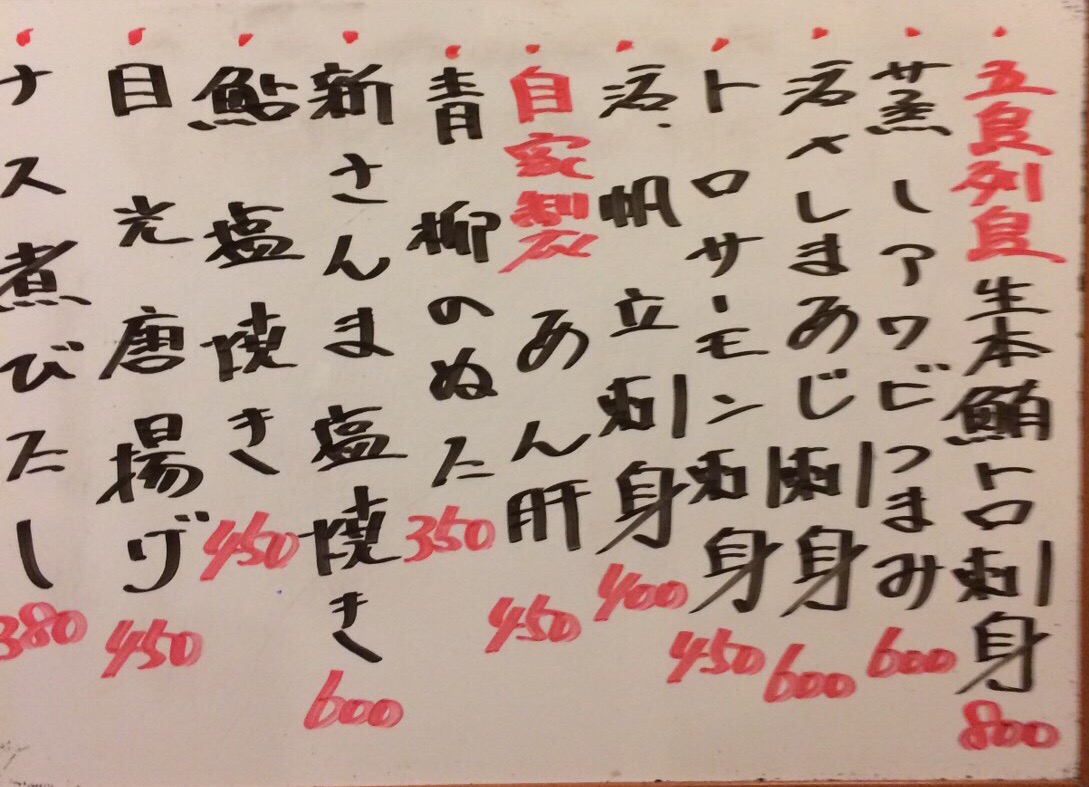 五良列良生本鮪トロ刺身800
蒸しアワビつまみ600
活〆しまあじ刺身600
トロサーモン刺身450
活帆立刺身400
自家製あん肝450
青柳のぬた350
新さんま塩焼き600
鮎塩焼き450
目光唐揚げ450
ナス煮びたし380